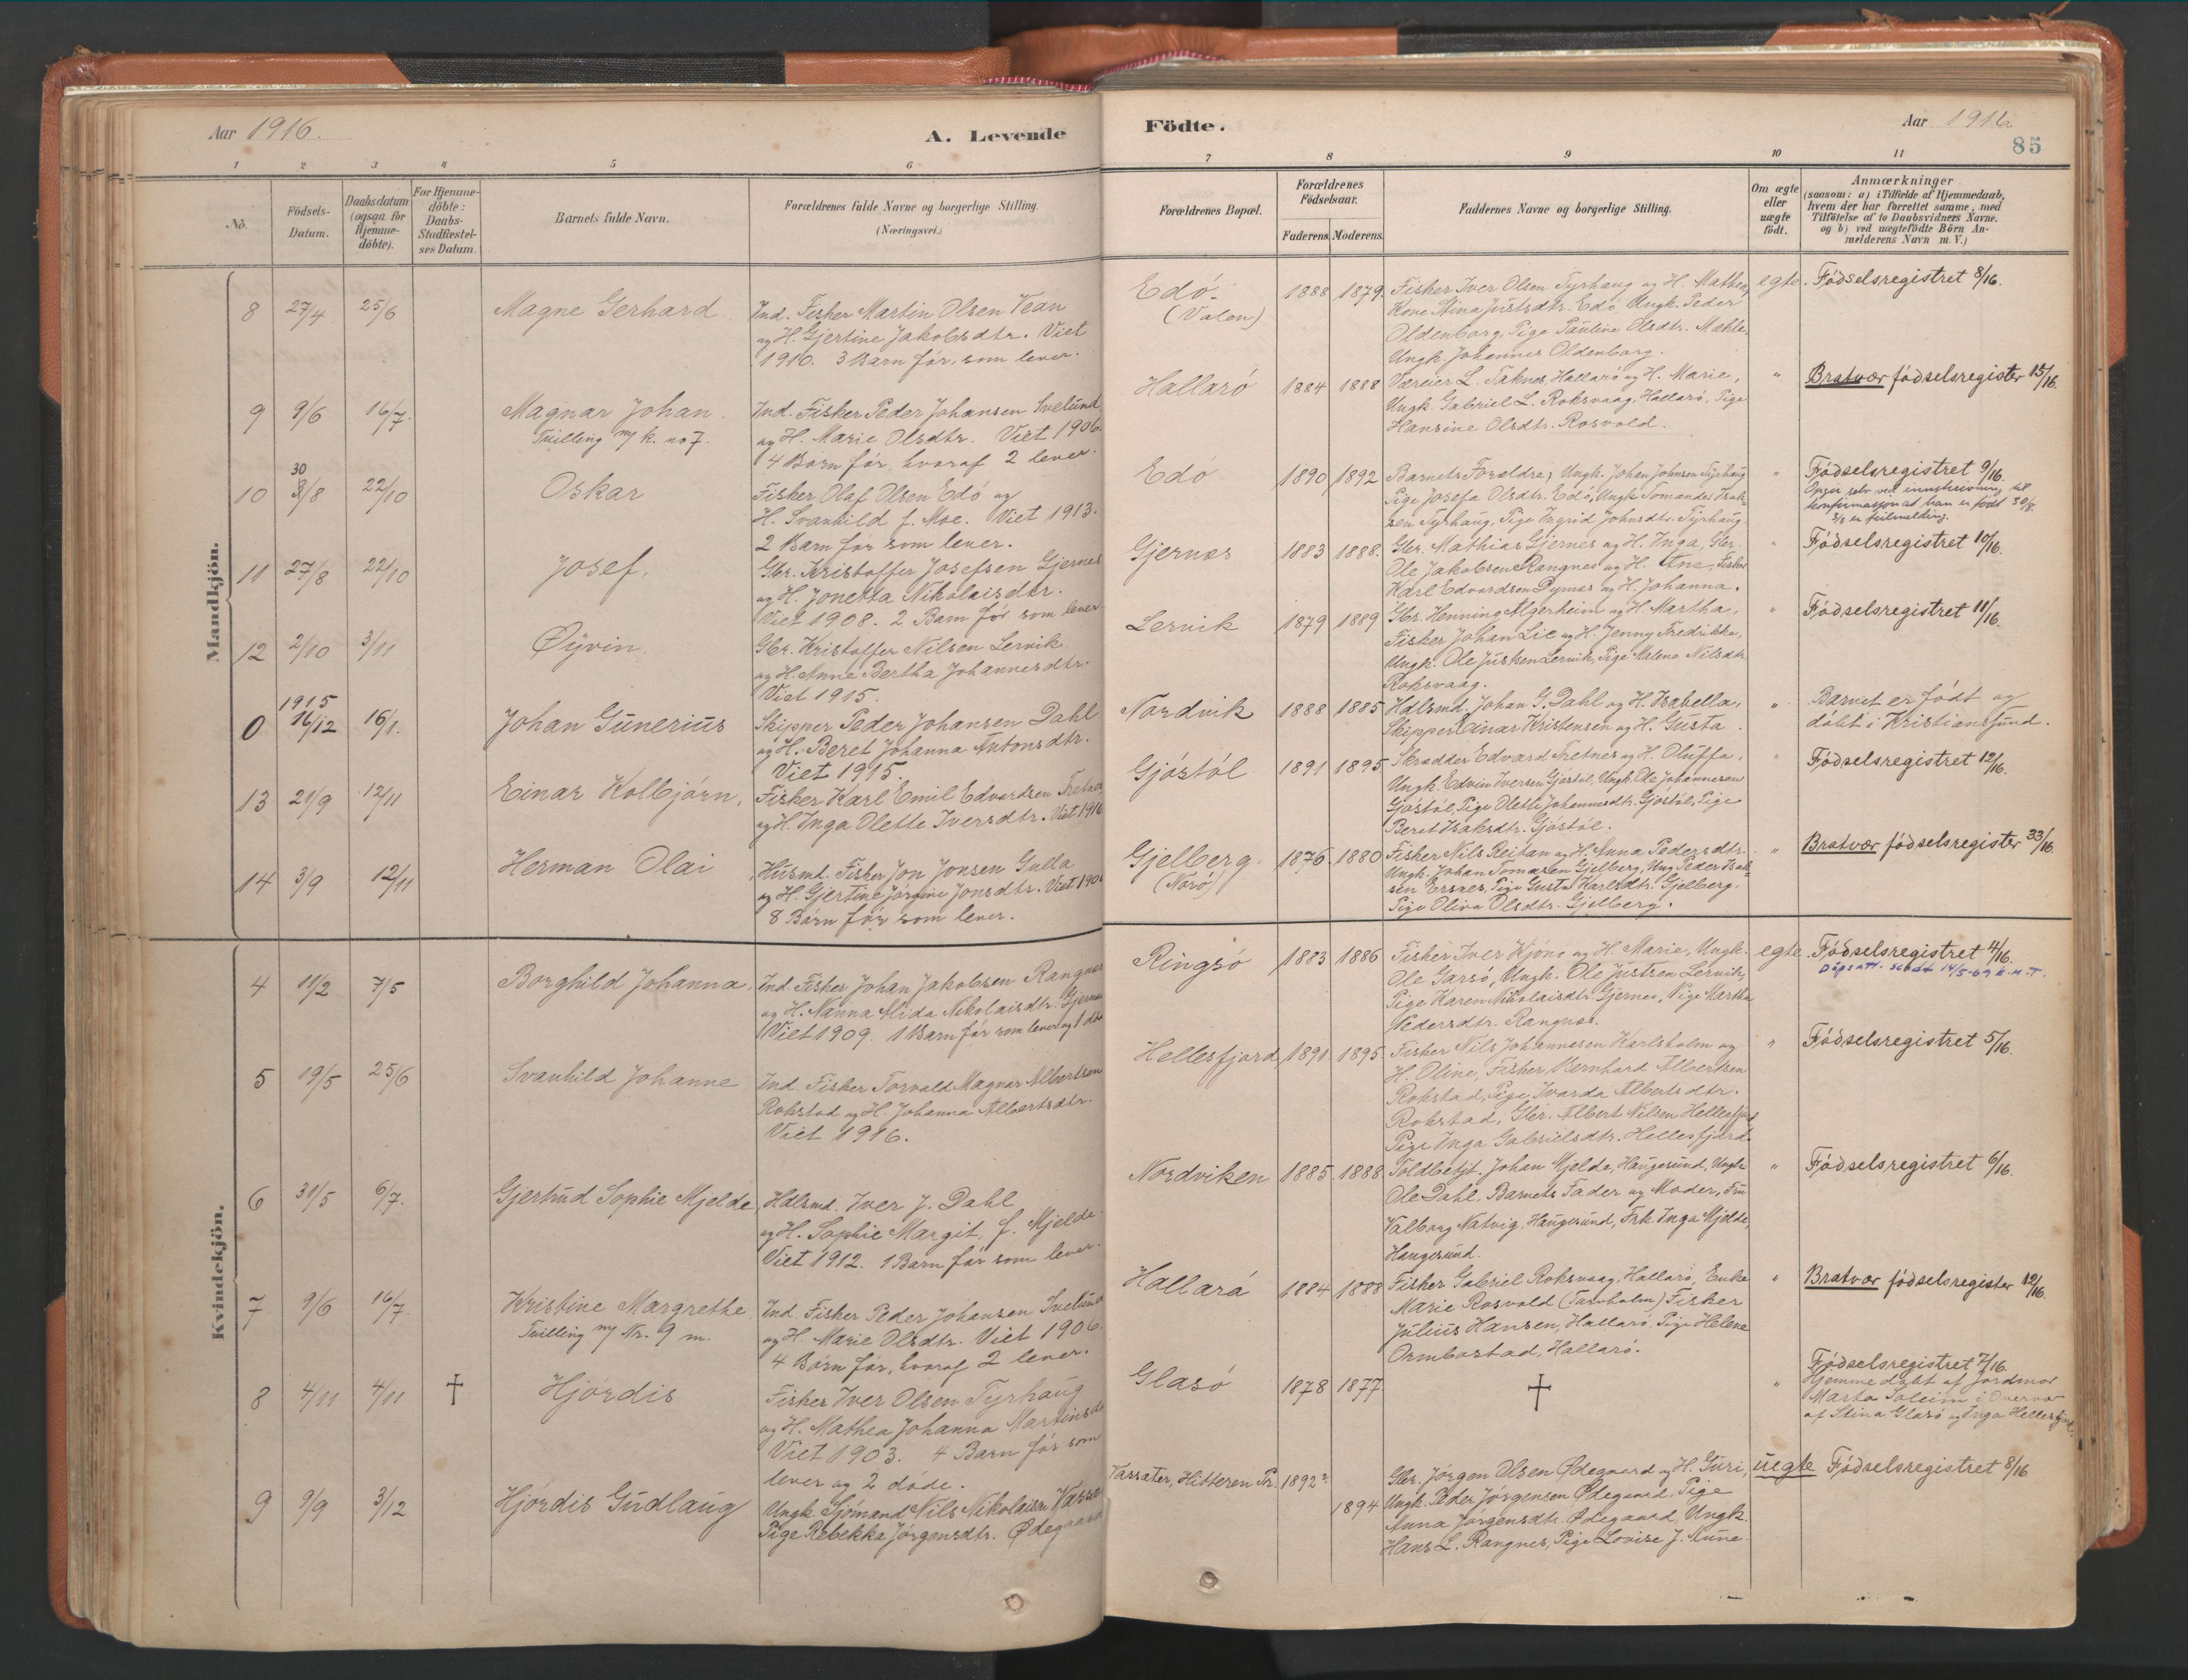 Aar 1916.
A. Levende
Födte.
Aar 1916
85
1 2 3 4 5 6 7 8 9 10 11
No.
Födsels-
Datum.
Daabsdatum
(ogsaa for
Hjemme-
döbte).
For Hjemme-
döbte:
Daabs-
Stadfæstel-
ses Datum.
Barnets fulde Navn.
Forældrenes fulde Navne og borgerlige Stilling.
(Næringsvei.)
Forældrenes Bopæl.
Forældrenes
Födselsaar.
Faderens. Moderens.
Faddernes Navne og borgerlige Stilling.
Om ægte
eller
uægte
födt.
Anmærkninger
(saasom: a) i Tilfælde af Hjemmedaab,
hvem der har forrettet samme, med
Tilföielse af to Daabsvidners Navne.
og b) ved uægtefödte Börn An-
melderens Navn m. V.)
Mandkjön.
8 27/4 25/6
Magne Gerhard
Ind. Fisker Martin Olsen Vean
og H. Gjertine Jakobsdtr. Viet
1910. 3 Barn før, som lever.
Edö.
(Valen)
1888 1879
Fisker Iver Olsen Tyrhaug og H. Mathea
Kone Stina Justsdtr. Edö, Ungk. Peder
Oldenborg, Pige Pauline Olsdtr.
Ungk. Johannes Oldenborg.
egte.
Födselsregistret 8/16.
9 9/6 16/7.
Magnar Johan
Tvilling m/ k. no 7.
Ind. Fisker Peder Johansen Svelund
og H. Marie Olsdtr. Viet 1906.
4 Börn för, hvoraf 2 lever.
Hallarö
1884 1888
L. Taknes, Hallarö og H. Marie,
Ungk. Gabriel L. Roksvaag, Hallarö, Pige
Hansine Olsdtr. Rosvold.
"
Bratvær födselsregister 15/16.
10 30 3/8 22/10
Oskar
Fisker Olaf Olsen Edö og
H. Svanhild f. Moe. Viet 1913.
2 Barn før som lever.
Edö
1890 1892
Barnets Foreldre, Ungk. Johan Johnsen Tyrhaug
Pige Josefa Olsdtr. Edö, Ungk Tomandes Isak-
sen Tyrhaug, Pige Ingrid Johnsdtr. Tyrhaug
"
Födselsregistret 9/16.
Opgir selv ved innskrivning til
konfirmasjon at han er födt 30/8.
3/8 er feilmelding.
11 27/8 22/10
Josef.
Gbr. Kristoffer Josefsen Gjernes
og H. Jonetta Nikolaisdtr.
Viet 1908. 2 Barn för som lever
Gjernes
1883 1888.
Gbr. Mathias Gjernes og H. Inga, Gbr.
Ole Jakobsen Rangnes og H. Ane, Fisker
Karl Edvardsen Dyrnes og H. Johanna.
"
Födselsregistret 10/16.
12 2/10 3/11
Øyvin.
Gbr. Kristoffer Nilsen Lervik
og H. Anne Bertha Johannesdtr.
Viet 1915.
Lervik
1879 1889
Gbr. Henning Algerheim og H. Martha,
Fisker Johan Lie og H. Jenny Fredrikke,
Ungk. Ole Justsen Lervik, Pige Malena Nilsdtr
Roksvaag.
"
Födselsregistret 11/16.
0 1915 16/12 16/1.
Johan Gunerius
Skipper Peder Johansen Dahl
og H. Beret Johanna Antonsdtr.
Viet 1915.
Nordvik
1888 1885
Hdlsmd. Johan G. Dahl og H. Isabella,
Skipper Einar Kristensen og H. Gusta.
"
Barnet er födt og
döbt i Kristiansund.
13 21/9 12/11
Einar Kolbjörn.
Fisker Karl Emil Edvardsen Tretnes
og H. Inga Olette Iversdtr. Viet 1916
Gjöstöl
1891 1895
Skrædder Edvard Tretnes og H. Oluffa,
Ungk. Edvin Iversen Gjöstöl, Ungk. Ole Johannesen
Gjöstöl, Pige Olette Johannesdtr. Gjöstöl, Pige
Beret Isaksdtr. Gjöstöl.
"
Födselsregistret 12/16.
14 3/9 12/11
Herman Olai
Husmd. Fisker Jon Jonsen Gulla
og H. Gjertine Jörgine Jonsdtr. Viet 190
8 Börn för som lever.
Gjelberg.
(Norö)
1876 1880
Fisker Nils Reitan og H. Anna Pedersdtr.
Ungk. Johan Tomasen Gjelberg, Ung. Peder Isak-
sen Ersnes, Pige Gusta Karlsdtr. Gjelberg.
Pige Oliva Olsdtr. Gjelberg.
"
Bratvær födselsregister 33/16.
Kvindekjön.
4 11/2 7/5
Borghild Johanna.
Ind. Fisker Johan Jakobsen Rangnes
og H. Nanna Alida Nikolaisdtr. Gjernes
Viet 1909. 1 Barn för som lever og 1 död
Ringsö
1883 1886
Fisker Iver Kjönö og H. Marie, Ungk.
Ole Garsö, Ungk. Ole Justsen Lervik,
Pige Karen Nikolaisdtr. Gjernes, Pige Martha
Pedersdtr. Rangnes.
egte.
Födselsregistret 4/16.
Dåpsatt. sendt 14/5-69 K.M.T.
5 19/5 25/6
Svanhild Johanne
Ind. Fisker Torvald Magnar Albertsen
Rokstad og H. Johanna Albertsdtr.
Viet 1916.
Hellesfjord
1891. 1895.
Fisker Nils Johannesen Karlsholm og
H. Oline, Fisker Bernhard Albertsen
Rokstad, Pige Ivarda Albertsdtr.
Rokstad, Gbr. Albert Nilsen Hellesfjord
Pige Inga Gabrielsdtr. Hellesfjord.
"
Födselsregistret 5/16.
6 31/5 6/7.
Gjertrud Sophie Mjelde
Hdlsmd. Iver J. Dahl
og H. Sophie Margit, f. Mjelde.
Viet 1912. 1 Barn før som lever.
Nordviken
1885 1888
Toldbetjt. Johan Mjelde, Haugesund, Ungk.
Ole Dahl. Barnets Fader og Moder, Fru
Valborg Natvig, Haugesund, Frk. Inga Mjelde
Haugesund.
"
Födselsregistret 6/16.
7. 9/6 16/7
Kristine Margrethe
Tvilling m/ Nr. 9 m.
Ind. Fisker Peder Johansen Svelund
og H. Marie Olsdtr. Viet 1906.
4 Börn för, hvoraf 2 lever.
Hallarö
1884 1888
Fisker Gabriel Roksvaag, Hallarö, Enke
Marie Rosvold (Tarvholm) Fisker
Julius Hansen, Hallarö. Pige Helene
Ormbostad, Hallarö.
"
Bratvær födselsregister 12/16.
8 4/11 4/11 †
Hjördis
Fisker Iver Olsen Tyrhaug
og H. Mathea Johanna Martinsdtr
Viet 1903. 4 Barn før som
lever og 2 döde.
Glasö
1878 1877
†
"
Födselsregistret 7/16.
Hjemmedöbt af Jordmor
Marta Soleim i Overvær
af Stina Glasö og Inga Hellesfjord.
9 9/9 3/12
Hjördis Gudlaug
Ungk. Sjömand Nils Nikolaisen Vasse
Pige Rebekka Jörgensdtr. Ødegaard
Vassæter, Hitteren Pr.
1892?
1894
Gbr. Jörgen Olsen Ødegaard og H. Guri,
Ungk. Peder Jörgensen Ødegaard, Pige
Anna Jörgensdtr. Ødegaard, Ungk.
Hans L. Rangnes, Pige Lovise J. Aune.
uegte
Födselsregistret 8/16